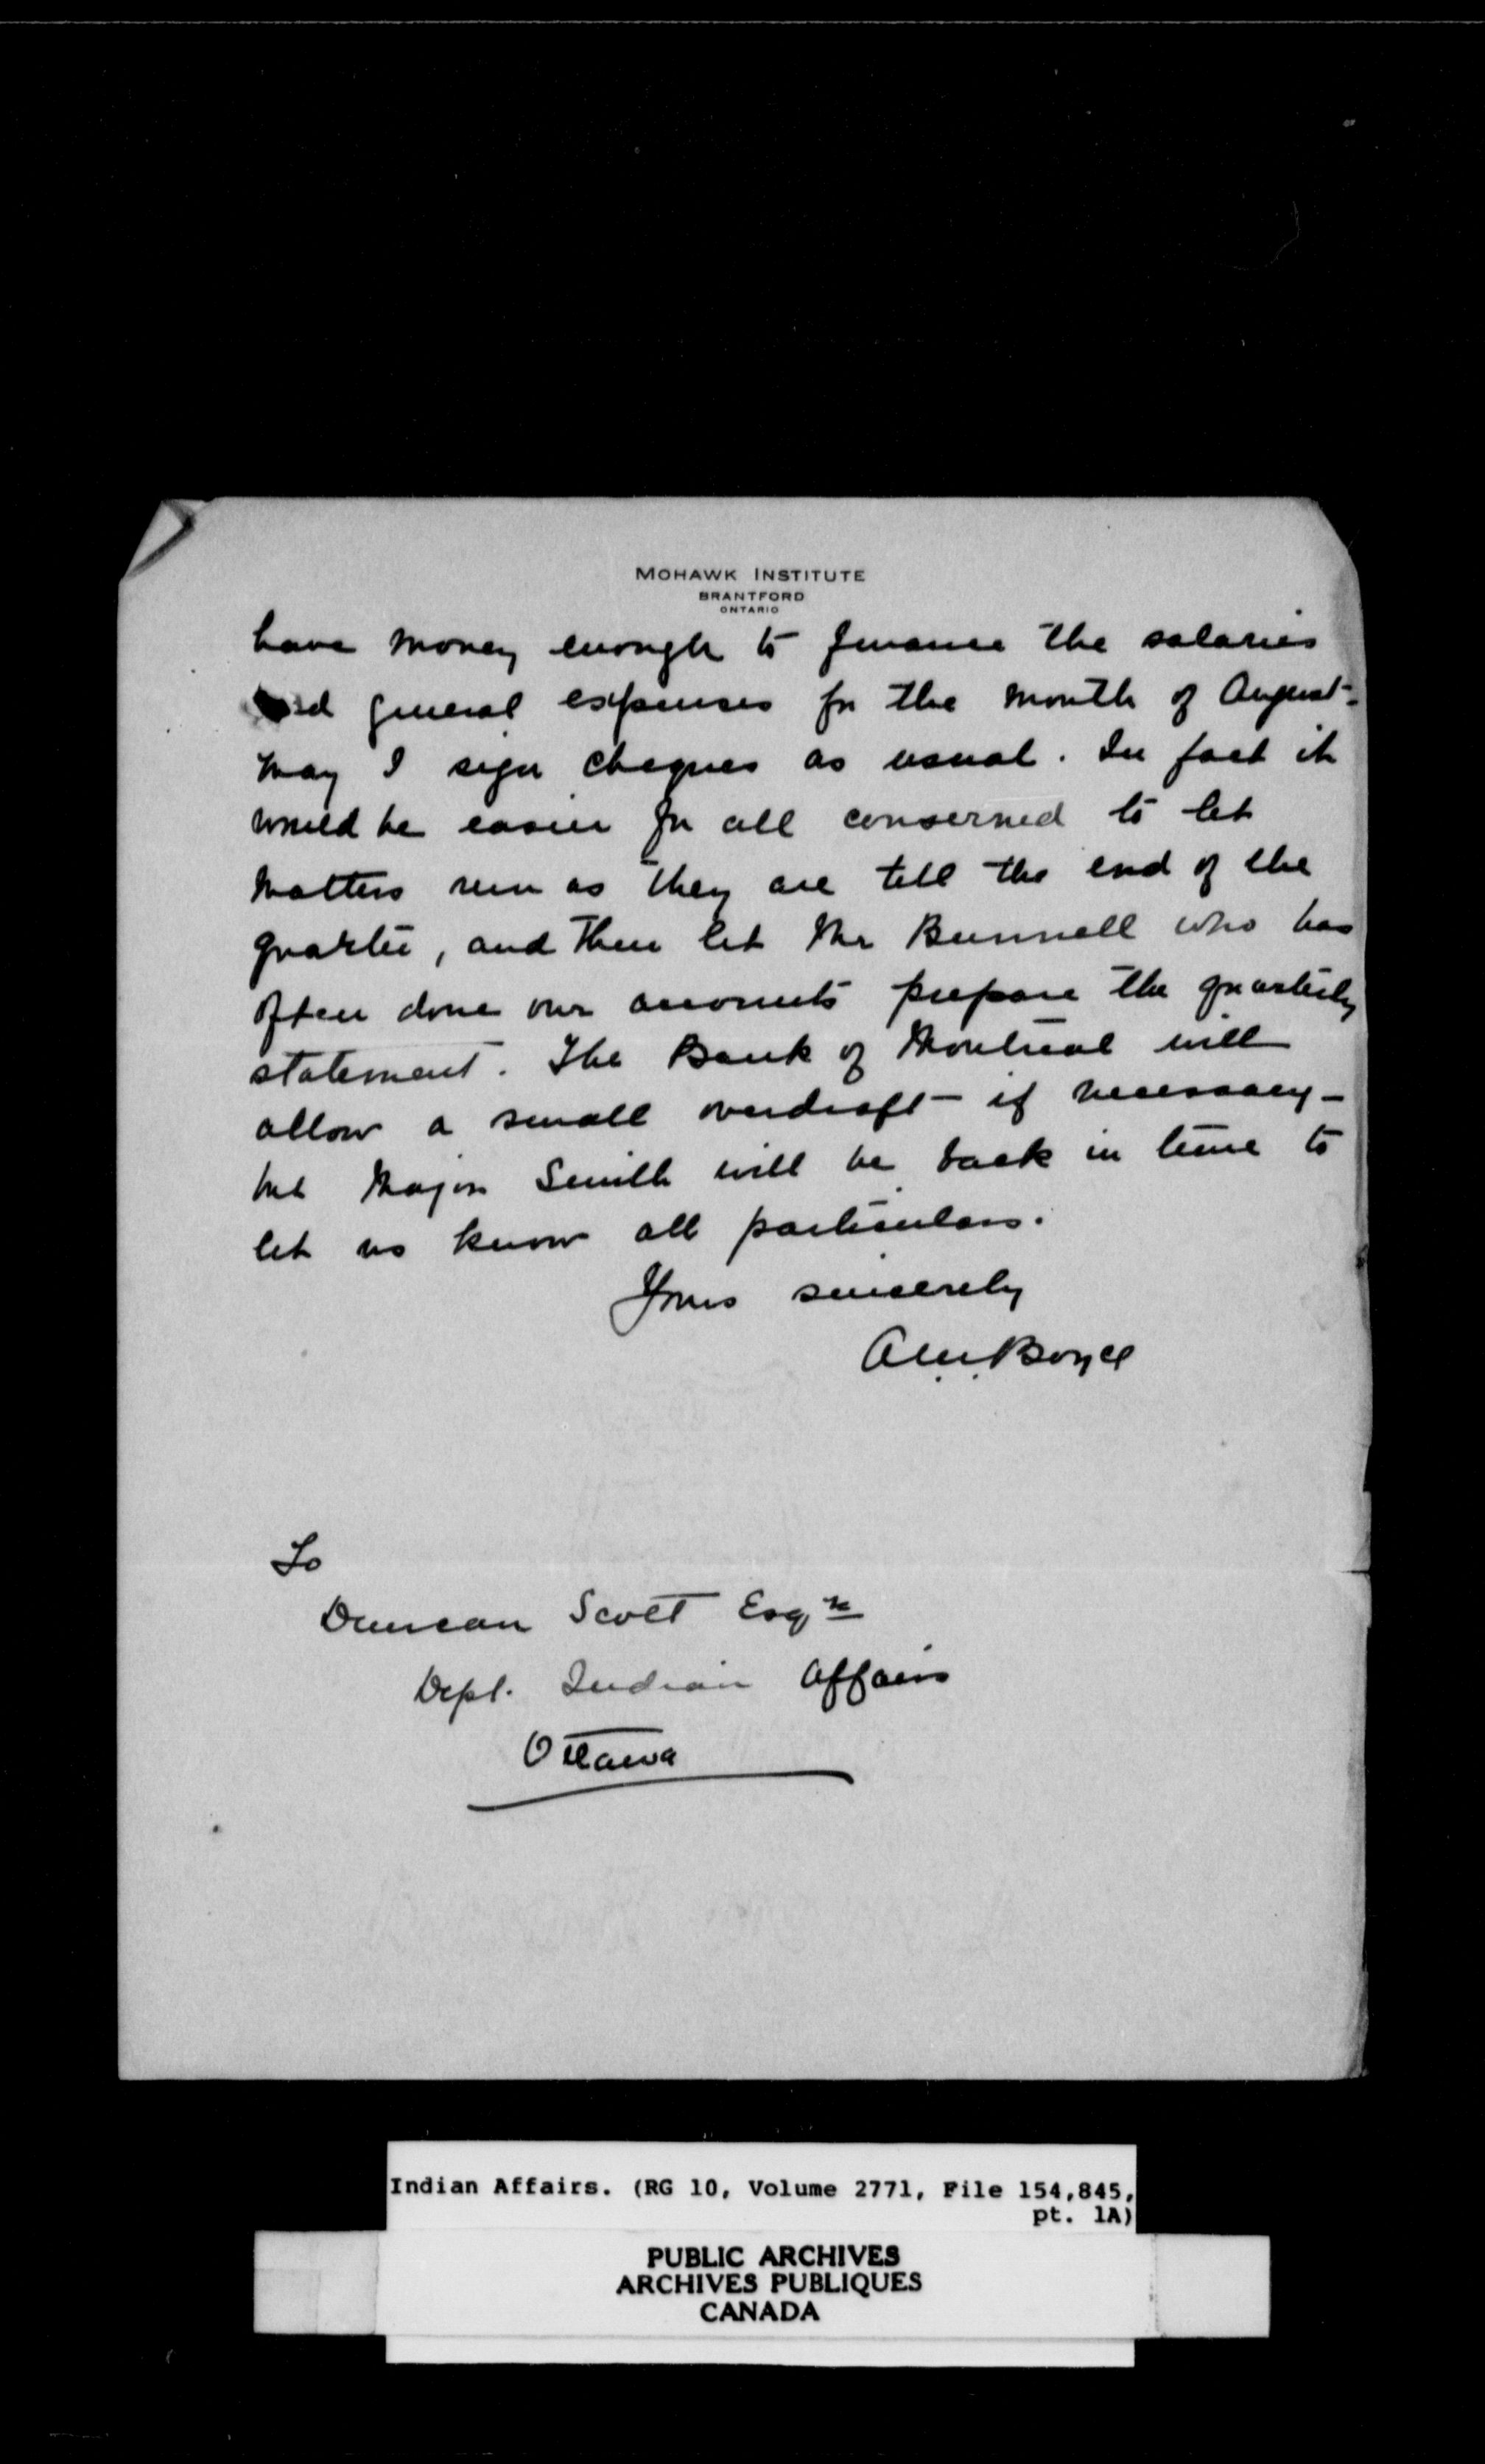 MOHAWK INSTITUTE
BRANTFORD
ONTARIO
have money enough to finance the salaries
and general expenses for the month of August -
may I sign cheques as usual. In fact it
would be easier for all concerned to let
matters run as they are till the end of the
quarter, and then let Mr Bunnell who has
often done our accounts prepare the quarterly
statement. The Bank of Montreal will
allow a small overdraft - if necessary -
but Major Smith will be back in time to
let us know all particulars.
Yours sincerely
A.M. Boyce
To
Duncan Scott Esqre
Dept. Indian Affairs
Ottawa
Indian Affairs. (RG 10, Volume 2771, File 154,845,
pt. 1A)
PUBLIC ARCHIVES
ARCHIVES PUBLIQUES
CANADA